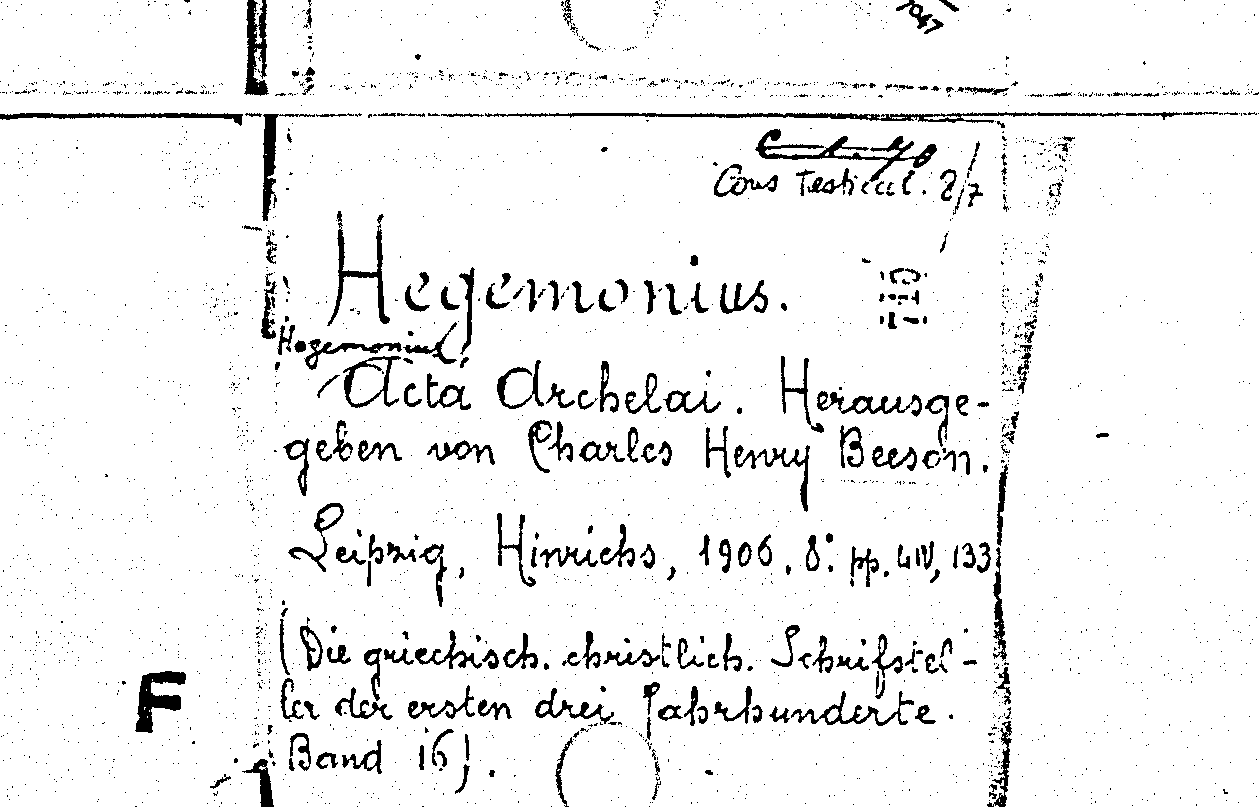 7047
Cons Testicul. 8/7
Hegemonius.
Hegemonius,
Acta Archelai. Herausge-
geben von Charles Henry Beeson.
Leipzig, Hinrichs, 1906. 8º pp. LIV, 133
(Die griechisch. christlich. Schrifstel-
ler der ersten drei Jahrhunderte.
Band 16).
F